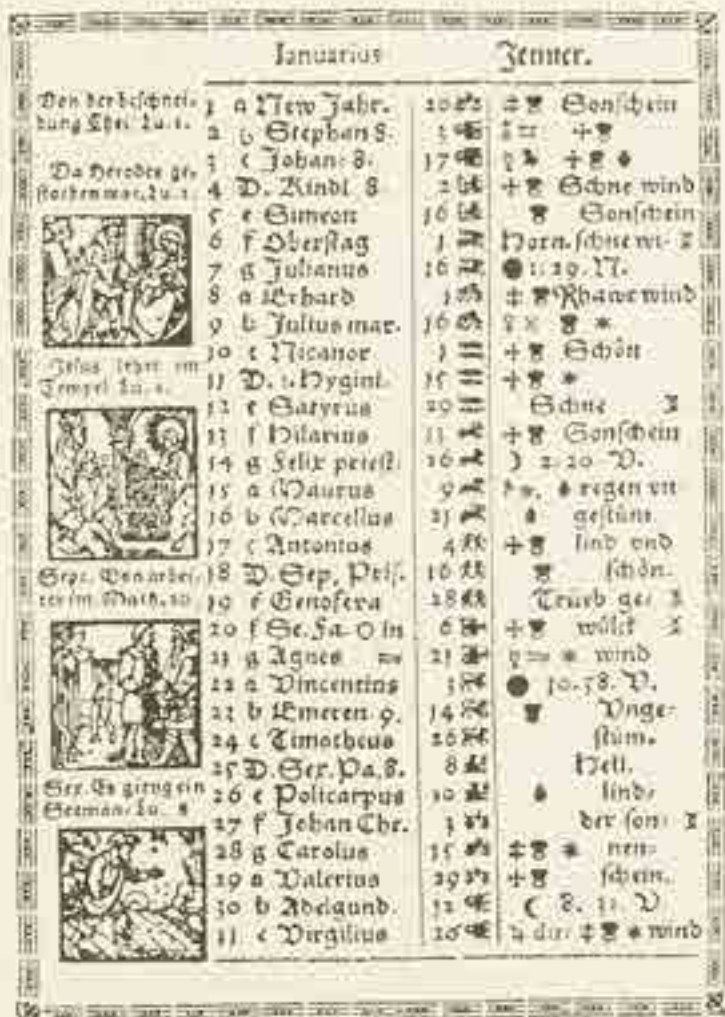 Ianuarius Jenner.
Von der beschnei-
dung Chri. Lu. 2.
Da Herodes ge-
storben war, Lu. 2.
Jesus lehrt im
Tempel Lu. 2.
Sept. Von arbei-
tern im Math. 20
Sex. Es gieng ein
Seeman. Lu. 8
1 a New Jahr. Sonschein
2 b Stephan 8.
3 c Johan. 8. 17
4 D. Kindl 8 Schne wind
5 e Simeon 16 Sonschein
6 f Oberstag 1 Horn. schne wi-
7 g Julianus 16 1. 29. N.
8 a Erhard wind
9 b Julius mar. 16
10 c Nicanor 1 Schön
11 D. 1. Hygini. 15
12 e Satyrus 29 Schne
13 f Hilarius Sonschein
14 g Felix priest. 26 2 20 V.
15 a Maurus 9 regen vn
16 b Marcellus gestüm.
17 c Antonius 4 lind vnd
18 D. Sep. Pris. 16 schön.
19 e Genofeva 28 Trüeb ge-
20 f Se. Fa. in 6 wülck
21 g Agnes 21 wind
22 a Vincentius V.
23 b Emeren. 9. 14 Vnge-
24 c Timotheus 26 stüm.
25 D. Sex. Pa. 8. 8 Hell.
26 e Policarpus lind-
27 f Johan Chr. 3 der son-
28 g Carolus 15 nen-
29 a Valerius 29 schein.
30 b Adelgund. 12 V
31 c Virgilius 26 wind